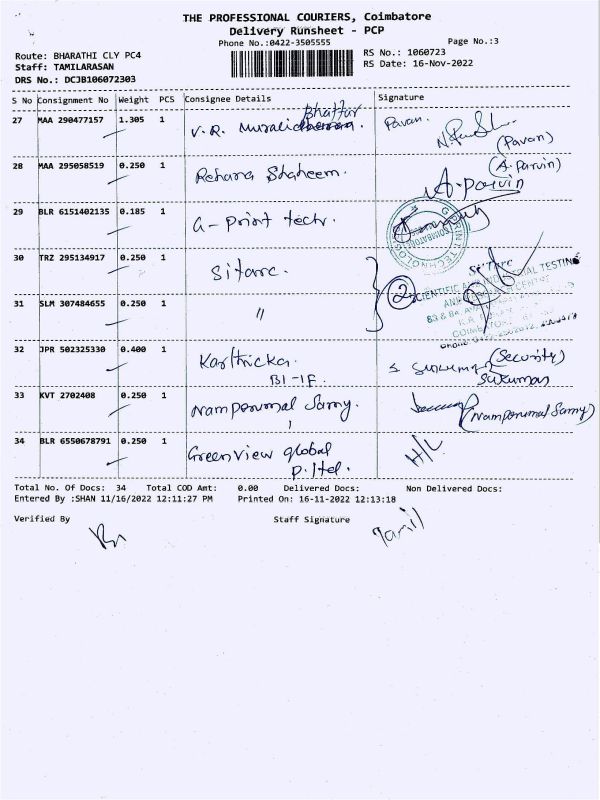 THE PROFESSIONAL COURIERS, Coimbatore
Delivery Runsheet - PCP
Phone No.:0422-3505555
Page No.:3
Route: BHARATHI CLY PC4
RS No.: 1060723
Staff: TAMILARASAN
RS Date: 16-Nov-2022
DRS No.: DCJB106072303
S No Consignment No Weight PCS Consignee Details Signature
27 MAA 290477157 1.305 1 V.R. Bhattar Pavan.
(Pavan)
28 MAA 295058519 0.250 1 Rehana Shaheem. (A.Parvin)
A.Parvin
29 BLR 6151402135 0.185 1 G-Print tech.
30 TRZ 295134917 0.250 1 Sitarc. Si'Tarc
2
31 SLM 307484655 0.250 1 "
32 JPR 502325330 0.400 1 Karthicka. (Security)
B1-1F. Sukumar
33 KVT 2702408 0.250 1 Namperumal Samy. (Namperumal Samy)
34 BLR 6550678791 0.250 1 Greenview global H/L
P.ltd.
Total No. Of Docs: 34 Total COD Amt: 0.00 Delivered Docs: Non Delivered Docs:
Entered By :SHAN 11/16/2022 12:11:27 PM Printed On: 16-11-2022 12:13:18
Verified By Staff Signature
Tamil